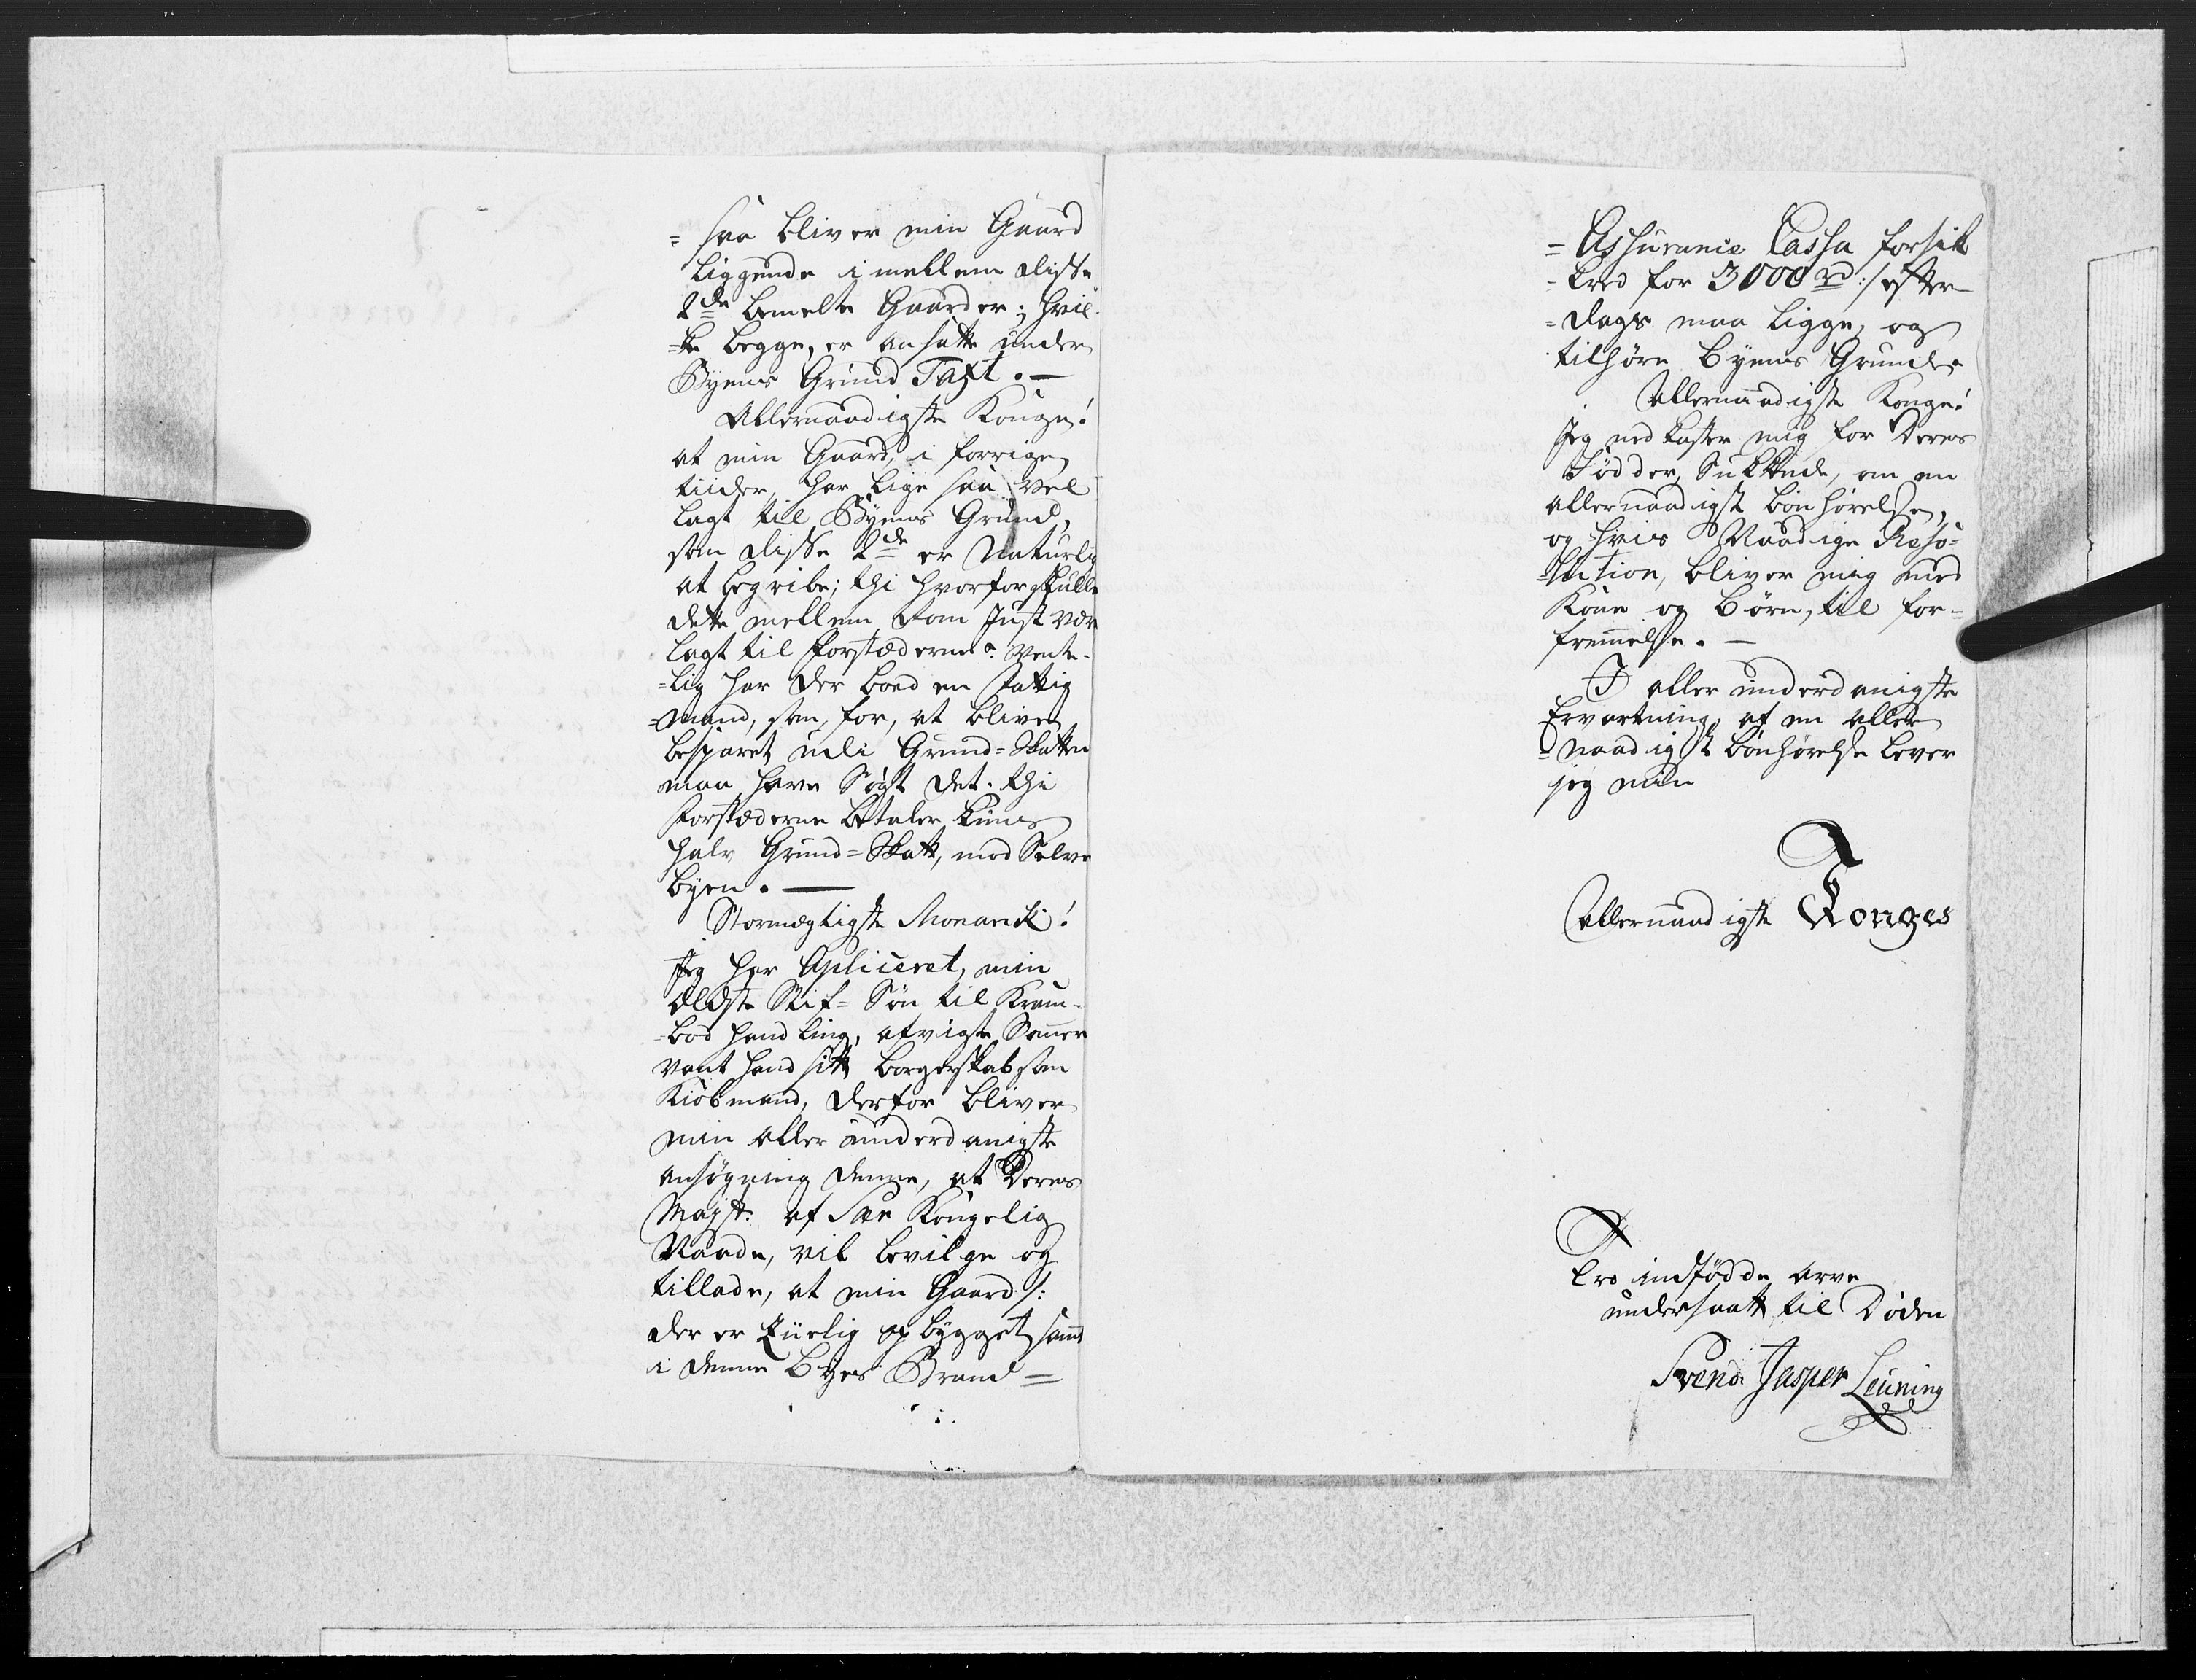 = saa bliver min Gaard
liggende i mellem disse
2de bemelte Gaarder; hvil-
=ke begge, er ansatte under
Byens Grund Taxt. —
Allernaadigste Konge!
at min Gaard, i forrige
tiider, har lige saa vel
lagt til Byens Grund,
som disse 2de er Naturlig
at begribe; thi hvorfor skulle
dette mellem Rom Just vær
lagt til forstæderne? vente-
=lig har der boed en fattig
=mand, som, for, at blive
besparet udi Grund=Skatten
maa have Søgt det. thi
forstæderne betaler kuns
halv Grund=Skatt, mod Selve
byen. —
Stormægtigste Monarch!
Jeg har Apliceret, min
ældste Stif= Søn til Kram-
=bod handling, afvigte Somer
vant hand sitt borgerskab som
Kiøbmand, derfor bliver
min aller underdanigste
ansøgning denne, at Deres
Mayst: af Sær Kongelig
Naade, vil bevilge og
tillade, at min Gaard /:
der er zirlig op bygget, samt
i denne Byes Brand=
= Assurance Cassa forsik
-kred for 3000 rd:/ efter
=dags maa ligge, og
tilhøre Byens Grund.
Allernaadigste Konge!
Jeg ned kaster mig for Deres
Fødder, Sukkende, om en
allernaadigst bønhørelse,
og hvis Naadige Reso=
=lution, bliver mig med
Kone og Børn, til for=
fremelse. —
I aller underdanigste
Ervartning, af en aller
=naadigst bønhørelse lever
jeg min
Allernaadigste Konges
tro indfødde arve
undersaatt til Døden
Svend Jasper Leuning